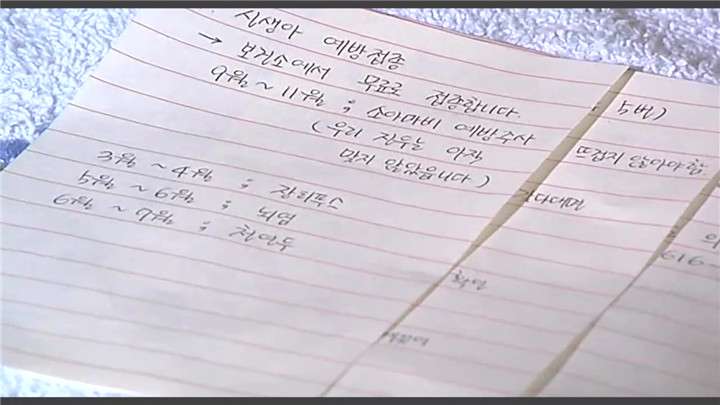 신생아 예방접종
→ 보건소에서 무료로 접종합니다.
9월 ~ 11월 ; 소아마비 예방주사
(우리 진우는 아직
맞지 않았습니다)
3월 ~ 4월 ; 장티푸스
5월 ~ 6월 ; 뇌염
6월 ~ 9월 ; 천연두
5번)
뜨겁지 않아야 함
갖다대면
확인
의
616-